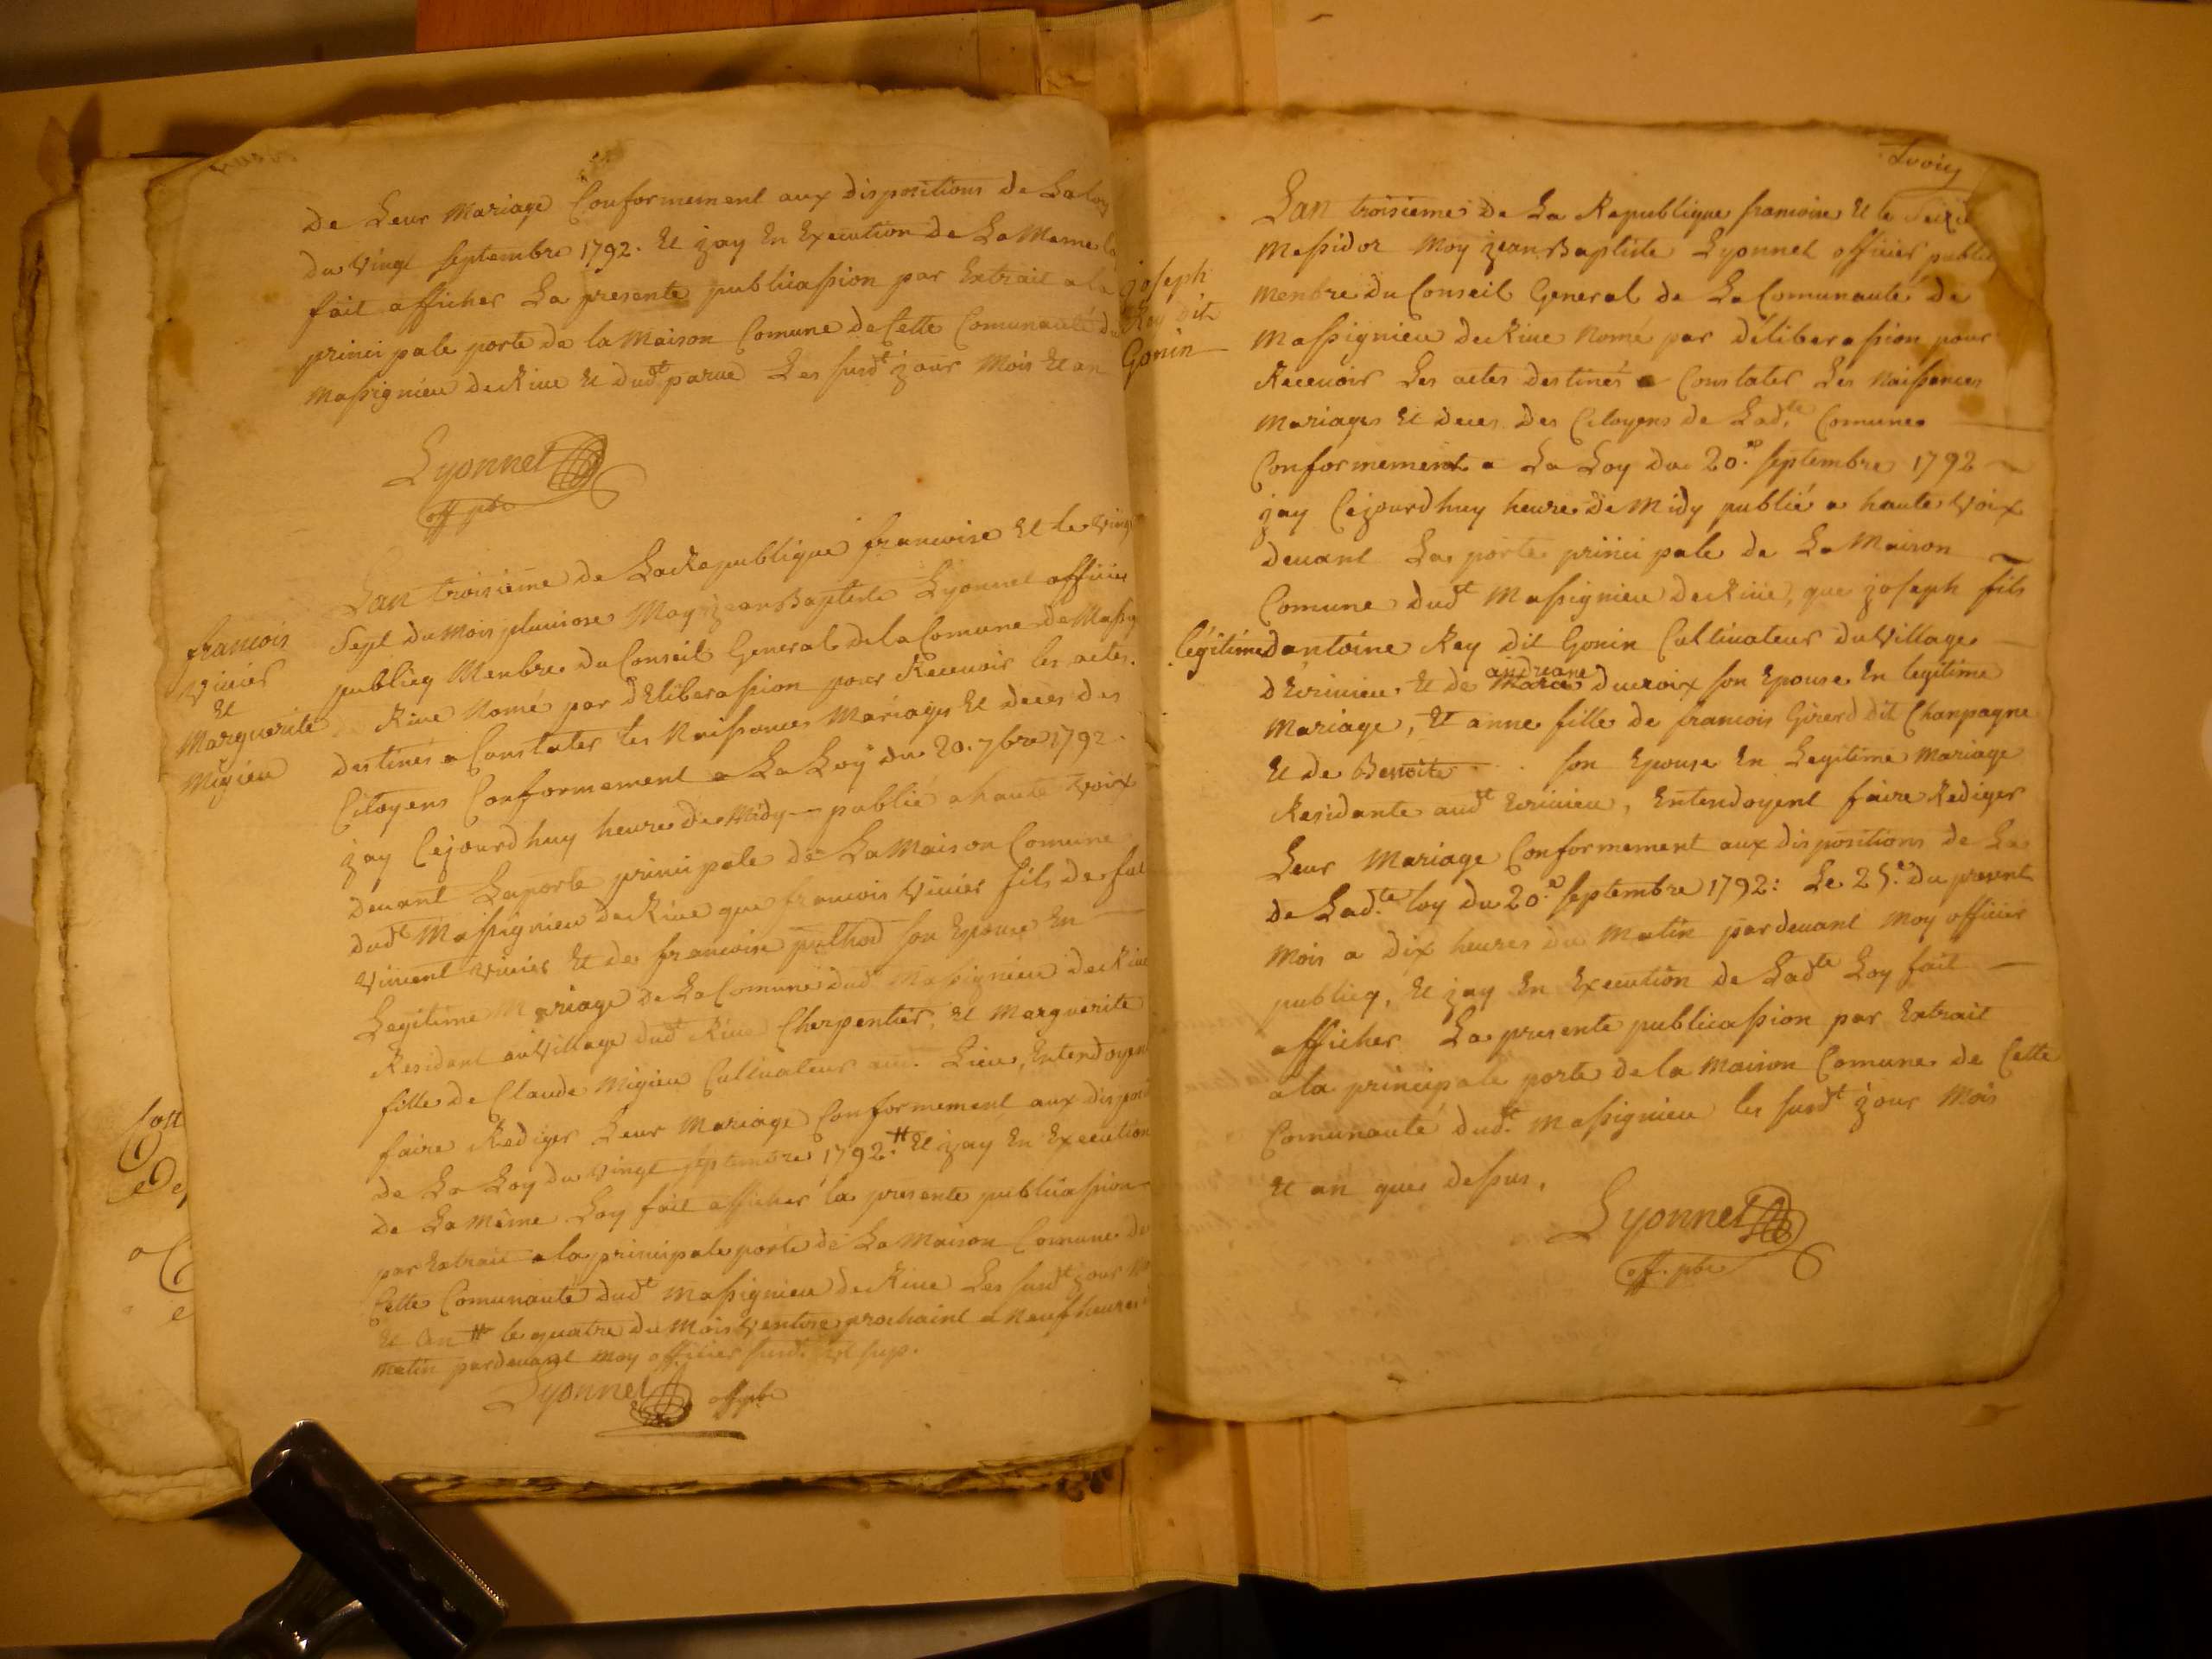 De Leur Mariage Conformement aux dispositions de La loy
du vingt septembre 1792. Et jay En Execution de La Meme
fait afficher La presente publicassion par Extrait a la
principale porte de la Maison Comune de Cette Comunauté
Massignieu de Rive Et dudt parve Les susdt jour Mois Et an
Lyonnet
off pbc
francois
vivier
Et
Marguerite
Migieu
Lan troisieme de La Republique francoise Et le vingt
Sept du Mois pluviose Moy jean Baptiste Lyonnet officier
publicq Menbre du Conseil General de la Comune de Massig
Rive Nomé par dEliberassion pour Recevoir les actes
destinés a Constater les Naissances Mariages Et deces des
Citoyens Conformement a La Loy du 20. 7bre 1792.
jay Cejourdhuy heure de Midy publié a haute voix
devant La porte principale de La Maison Comune
dudt Massignieu de Rive que francois vivier fils de fut
vincent vivier Et de francoise son Epouse En
Legitime Mariage de La Comune dudt Massignieu de Rive
Resident au village dudt Rive Cherpentier, Et Marguerite
fille de Claude Migieu Cultivateur aud. Lieu, Entendoyent
faire Rediger Leur Mariage Conformement aux disposi
de La Loy du vingt septembre 1792.# Et jay En Execution
de La Même Loy fait afficher la presente publicassion
par Extrait a la principale porte de La Maison Comune de
Cette Comunauté dudt Massignieu de Rive Les susdt jour
Et an # le quatre du Mois ventose prochaint a Neuf heures
matin pardevant moy officier susd.
Lyonnet off pbc
joseph
Rey dit
Gonin
Lan troisieme de La Republique francoise Et le
Messidor Moy jean Baptiste Lyonnet officier public
Menbre du Conseil General de La Comunauté de
Massignieu de Rive Nomé par déliberassion pour
Recevoir Les actes destinés a Constater Les Naissances
Mariages Et deces des Citoyens de Ladte Comune
Conformement a La Loy du 20.e septembre 1792
jay Cejourdhuy heure de Midy publié a haute voix
devant La porte principale de La Maison
Comune dudt Massignieu de Rive, que joseph fils
légitime dantoine Rey dit Gonin Cultivateur du village
andreane
dEvirieu Et de Marie ducroix son Epouse En legitime
Mariage, Et anne fille de francois Girerd dit Chanpagne
Et de Benoite . . son Epouse En Legitime Mariage
Residante audt Evirieu, Entendoyent faire Rediger
Leur Mariage Conformement aux dispositions de La
de Ladte loy du 20.e septembre 1792: Le 25.e du present
Mois a dix heures du Matin pardevant Moy officier
publicq, Et jay En Execution de Ladte Loy fait
afficher La presente publicassion par Extrait
a la principale porte de la Maison Comune de Cette
Comunauté dudt Massignieu les susdt jour Mois
Et an que dessus.
Lyonnet
off. pbc